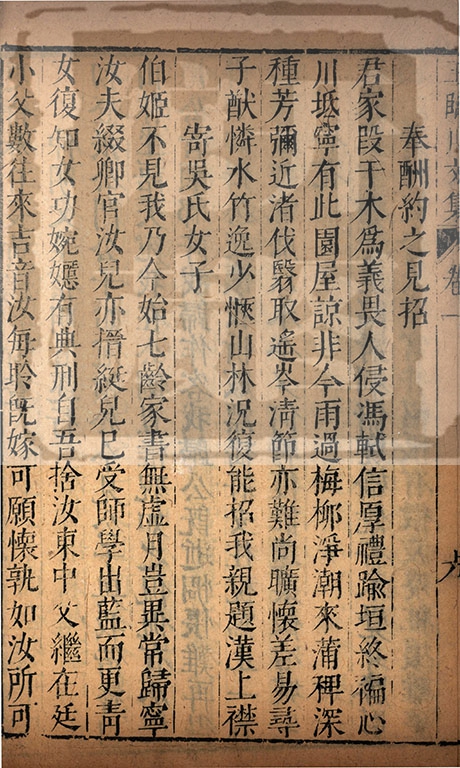 王臨川文集 卷一
奉酬約之見招
君家段干木爲義畏人侵馮軾信厚禮踰垣終褊心
川坻寧有此園屋諒非今雨過梅柳淨潮來蒲稗深
種芳彌近渚伐翳取遙岑清節亦難尚曠懷差易尋
子猷憐水竹逸少愜山林況復能招我親題漢上襟
寄吳氏女子
伯姬不見我乃今始七齡家書無虛月豈異常歸寧
汝夫綴卿官汝兒亦搢綎兒已受師學出藍而更青
女復知女功婉嬺有典刑自吾捨汝東中父繼在廷
小父數往來吉音汝每聆旣嫁可願懷孰如汝所可